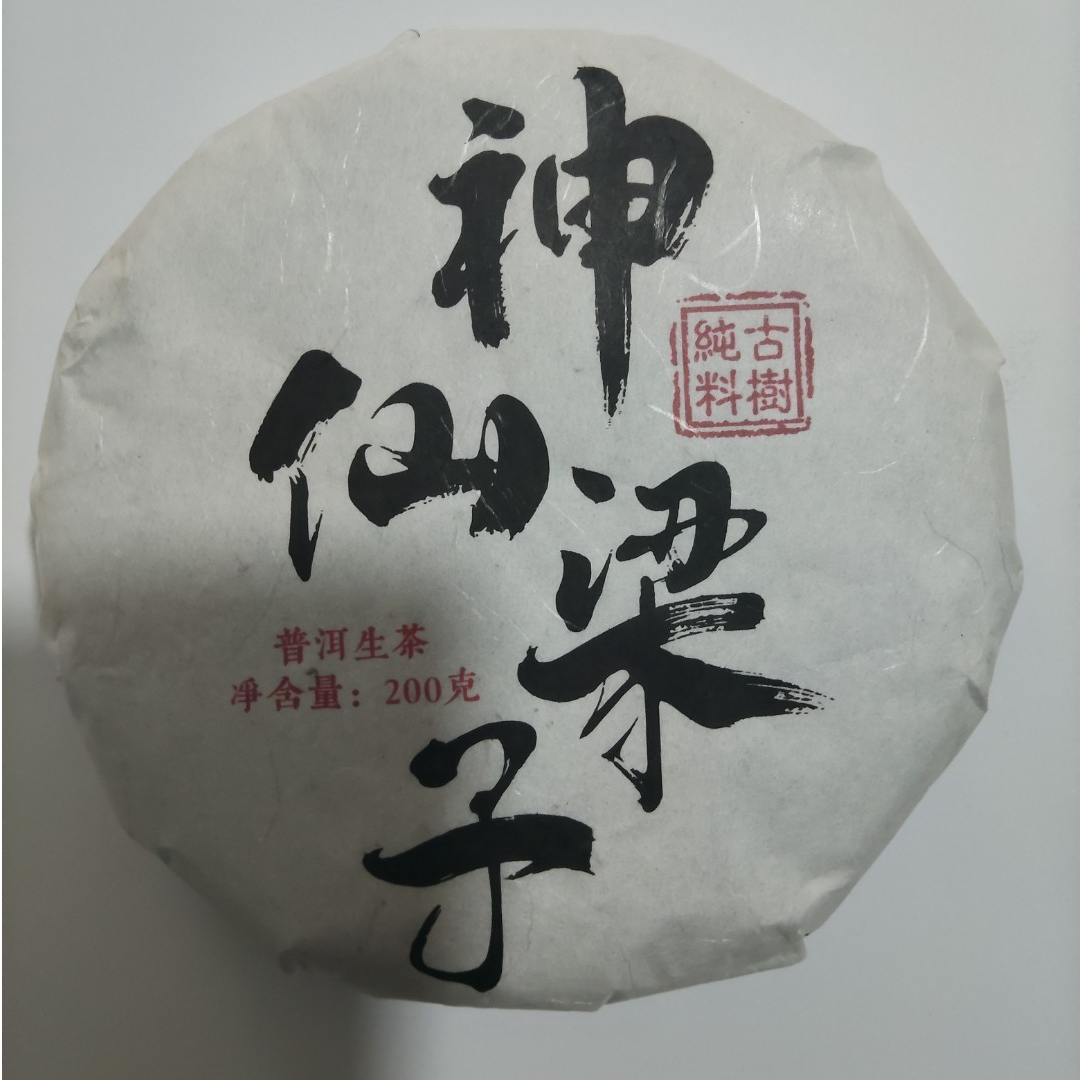 神仙梁子
古樹
純料
普洱生茶
凈含量：200克